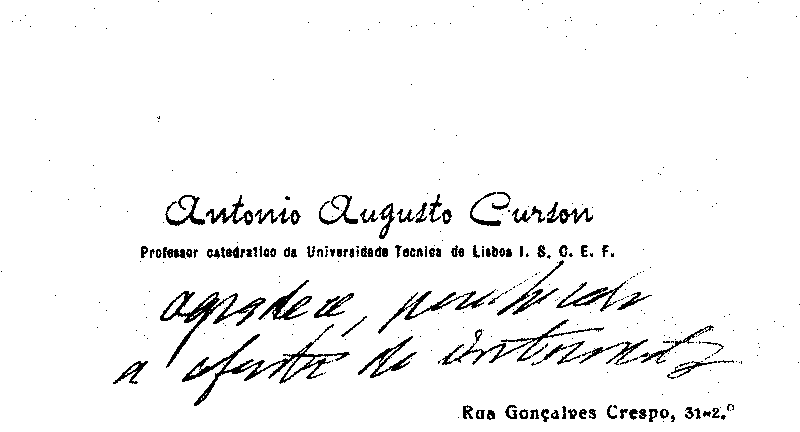 Antonio Augusto Curson
Professor catedratico da Universidade Tecnica de Lisboa I. S. C. E. F.
agradece, penhorado
a oferta do
Rua Gonçalves Crespo, 31-2.º